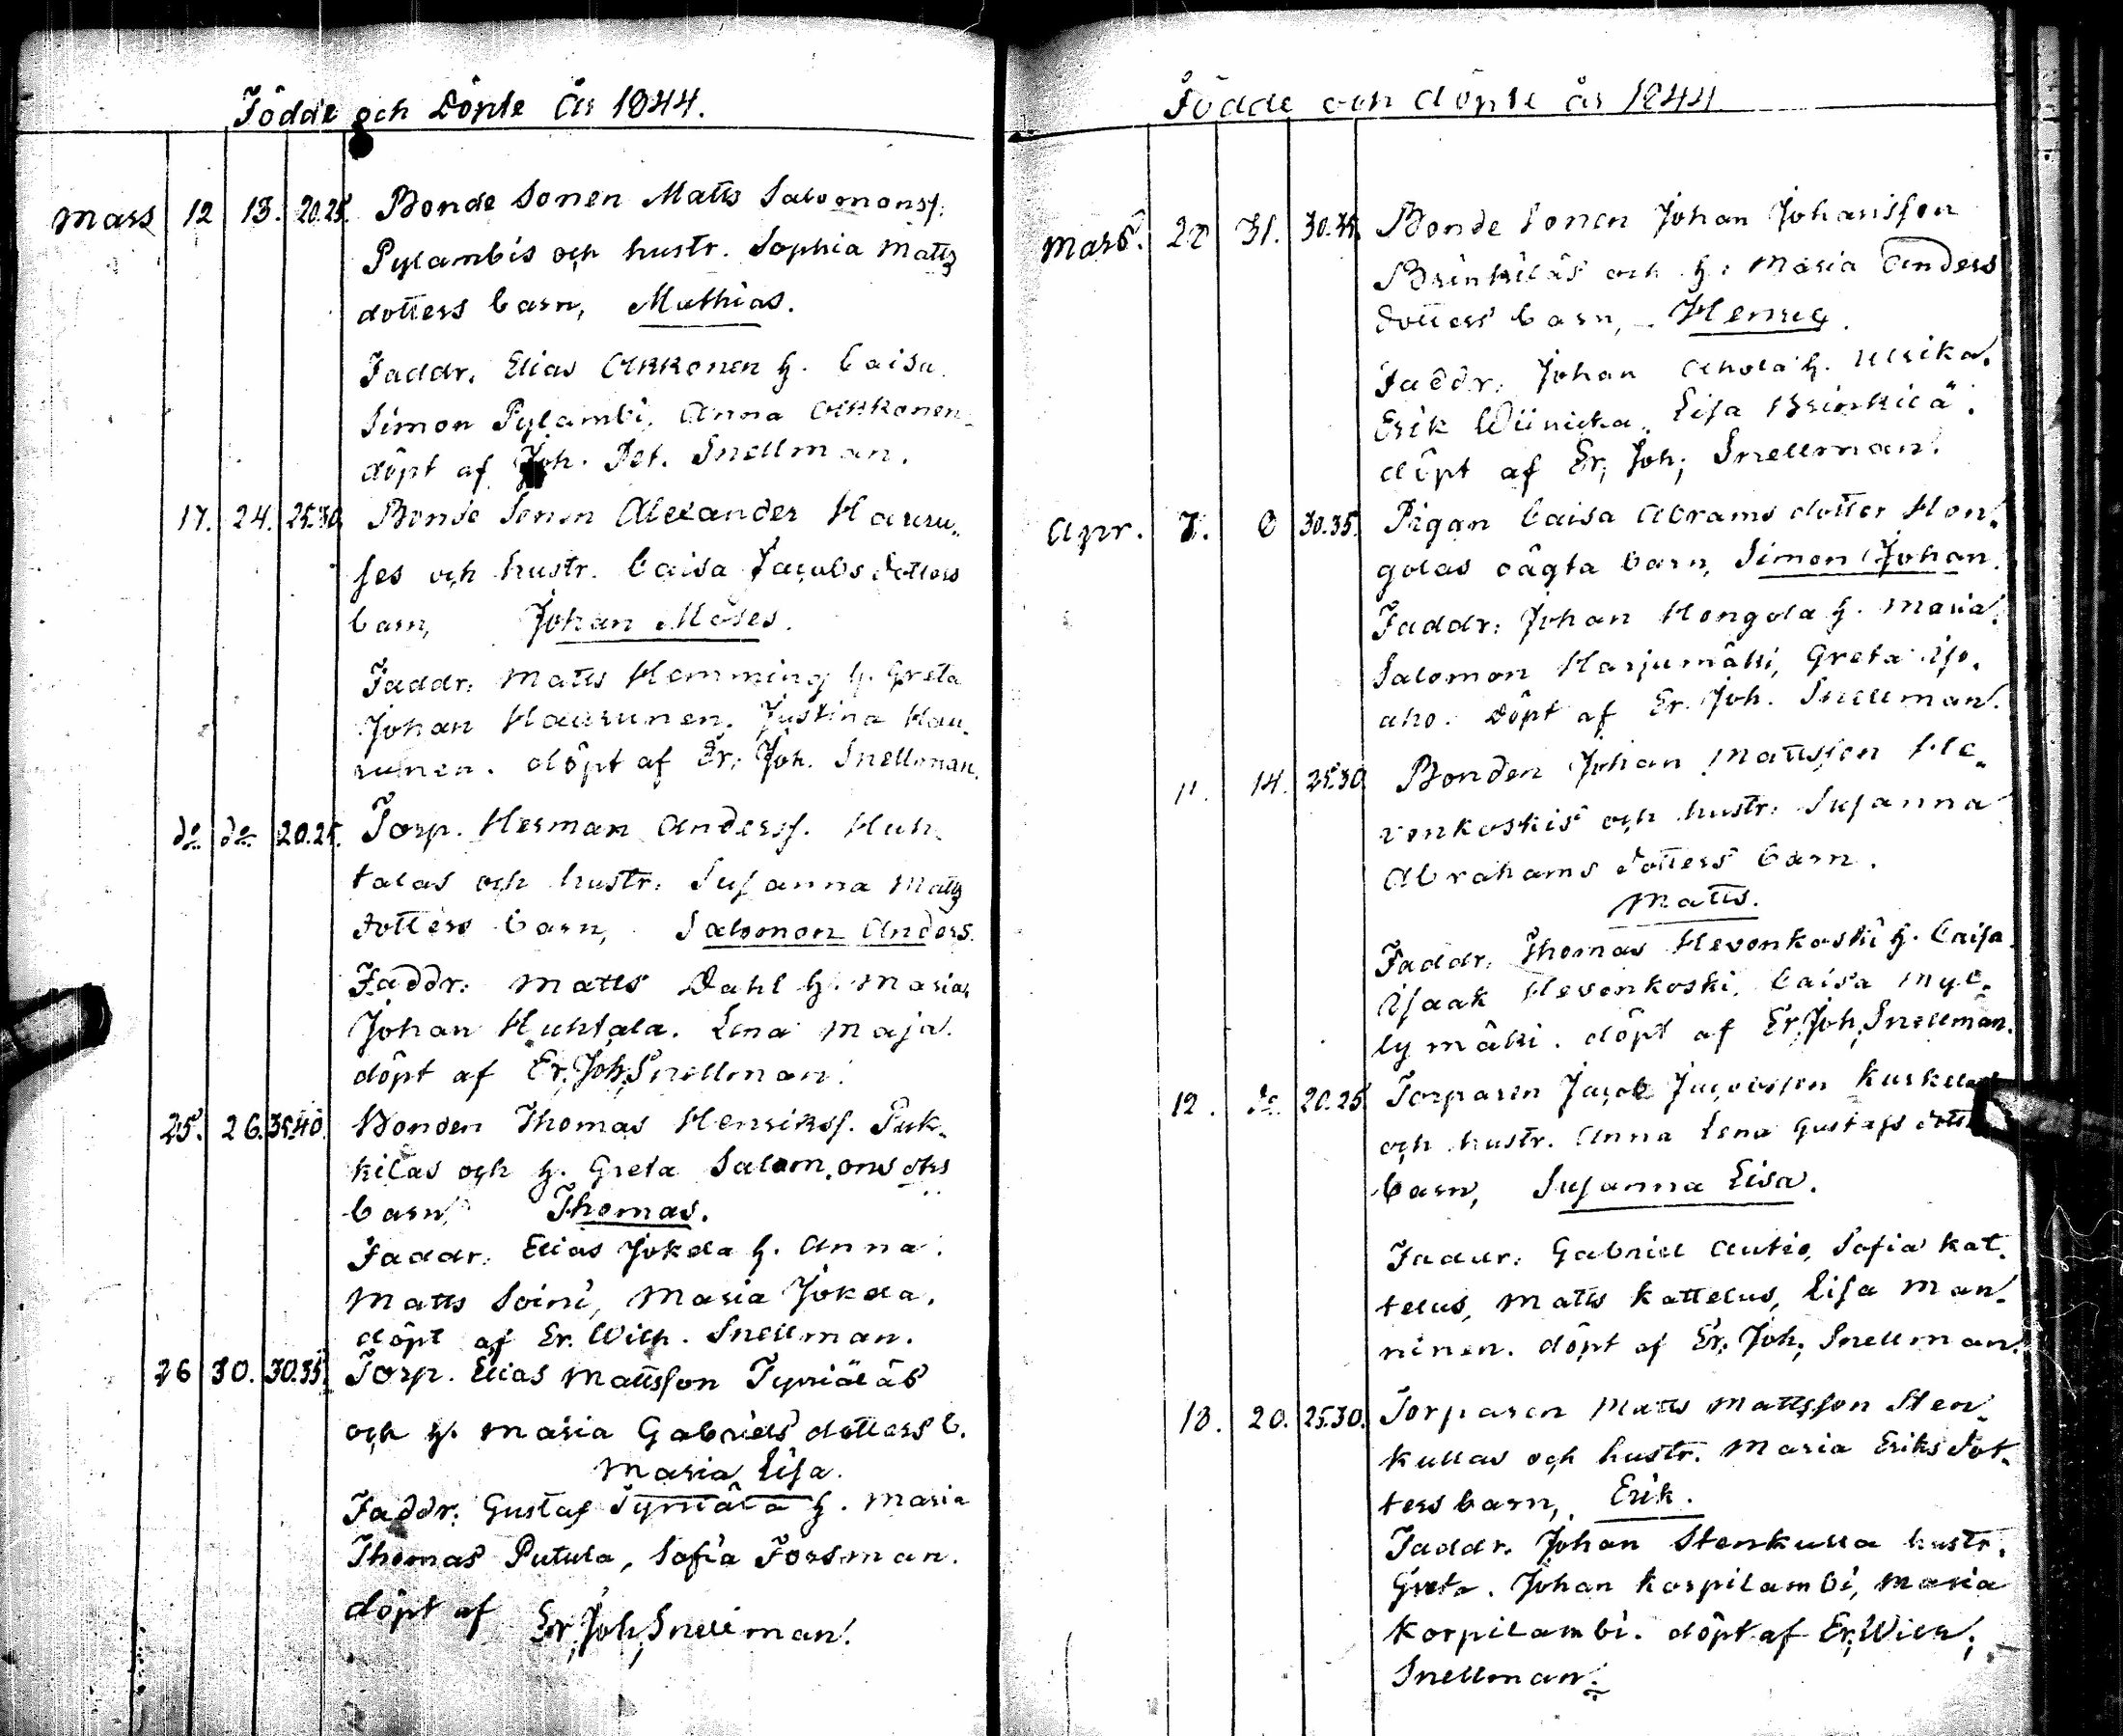 Födde och Döpte År 1844.
Mars 12 13. 20.25. Bonde Sonen Matts Salomonss.
Pylambis och hustr. Sophia Matts
dotters barn, Mathias.
Faddr. Elias Akkonen h. Caisa.
Simon Pylambi, Anna Akkonen
döpt af Joh. Pet. Snellman.
17. 24. 25.30. Bonde Sonen Alexander Hauru-
ses och hustr. Caisa Jacobs dotters
barn, Johan Moses.
Faddr. Matts Hemming h. Greta
Johan Haurunen. Justina Hau-
runen. döpt af Er. Joh. Snellman.
do do 20.25. Torp. Herman Anderss. Huh-
talas och hustr. Susanna Matts
dotters barn, Salomon Anders.
Faddr. Matts Dahl h. Maria,
Johan Huhtala. Lena Maja.
döpt af Er. Joh. Snellman.
25. 26. 35.40. Bonden Thomas Henrikss. Puk-
kilas och h. Greta Salomons dtrs
barn, Thomas.
Faddr. Elias Jokela h. Anna.
Matts Soini, Maria Jokela.
döpt af Er. Wilh. Snellman.
26 30. 30.35. Torp. Elias Mattsson Tyriäläs
och h. Maria Gabriels dotters b.
Maria Lisa.
Faddr. Gustaf Tyriälä h. Maria
Thomas Putula, Sofia Forsman.
döpt af Er. Joh. Snellman.
Födde och döpte år 1844
Mars. 31. 30.35. Bonde Sonen Johan Johansson
Brinkiläs och h. Maria Anders
dotters barn, Henric.
Faddr. Johan Ahola h. Ulrika.
Erik Wiinicka. Lisa Brinkilä.
döpt af Er. Joh. Snellman.
Apr. 7. 8 30.35. Pigan Caisa Abrams dotter Hon-
golas oägta barn, Simon Johan.
Faddr. Johan Hongola h. Maria.
Salomon Harjumäki, Greta Iso-
aho. döpt af Er. Joh. Snellman.
11. 14. 25.30. Bonden Johan Mattsson He-
vonkoskis och hustr. Susanna
Abrahams dotters barn.
Matts.
Faddr. Thomas Hevonkoski h. Caisa.
Isaak Hevonkoski. Caisa Myl-
lymäki. döpt af Er. Joh. Snellman.
12. do. 20.25. Torparen Jacob Jacobsson
och hustr. Anna Lena Gustafs
barn, Susanna Lisa.
Faddr. Gabriel Autio, Sofia Kat-
telus, Matts Kattelus, Lisa Man-
ninen. döpt af Er. Joh. Snellman.
18. 20. 25.30. Torparen Matts Mattsson Sten-
kullas och hustr. Maria Eriks dot-
ters barn, Erik.
Faddr. Johan Stenkulla hustr.
Greta. Johan Korpilambi, Maria
Korpilambi. döpt af Er. Wilh.
Snellman.